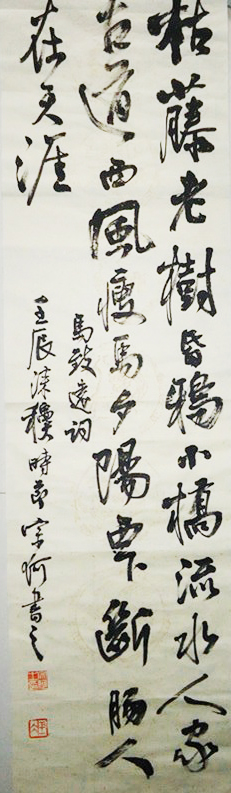 枯藤老樹昏鴉小橋流水人家
古道西風瘦馬夕陽西下斷腸人
在天涯
馬致遠詞
壬辰穫時节宗書之